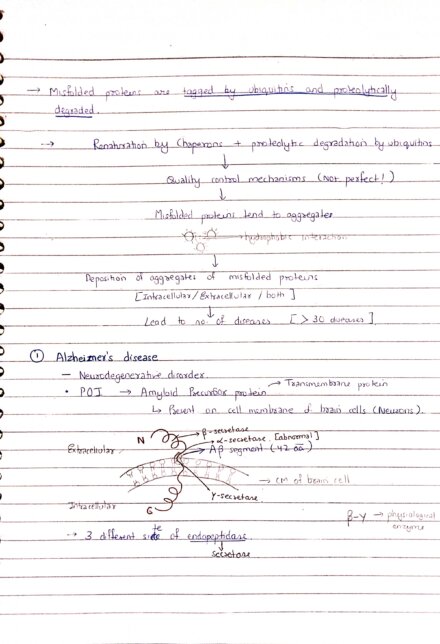 → Misfolded proteins are tagged by ubiquitins and proteolytically
degraded.
→ Renaturation by Chaperons + proteolytic degradation by ubiquitins
↓
Quality control mechanisms (Not perfect!)
↓
Misfolded proteins tend to aggregates
→ hydrophobic interaction
↓
Deposition of aggregates of misfolded proteins
[Intracellular/Extracellular / both]
↓
Lead to no. of diseases [>30 diseases]
① Alzheimer's disease
— Neurodegenerative disorder.
• POI → Amyloid Precursor protein → Transmembrane protein
↳ Present on cell membrane of brain cells (Neurons).
N → β-secretase
→ α-secretase. [abnormal]
Extracellular → Aβ segment (42 aa)
→ CM of brain cell
γ-secretase
Intracellular C
β-γ → physiological
enzyme
→ 3 different site of endopeptidase.
↓
secretase